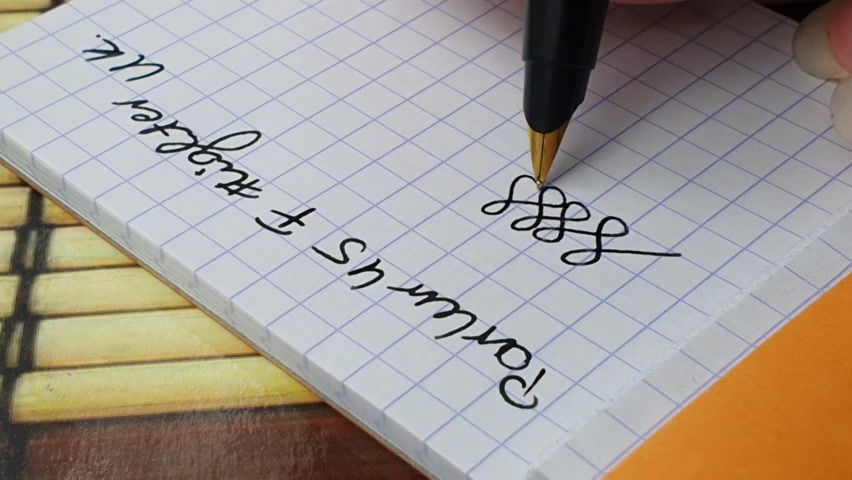 Parker 45 F Flighter UK.